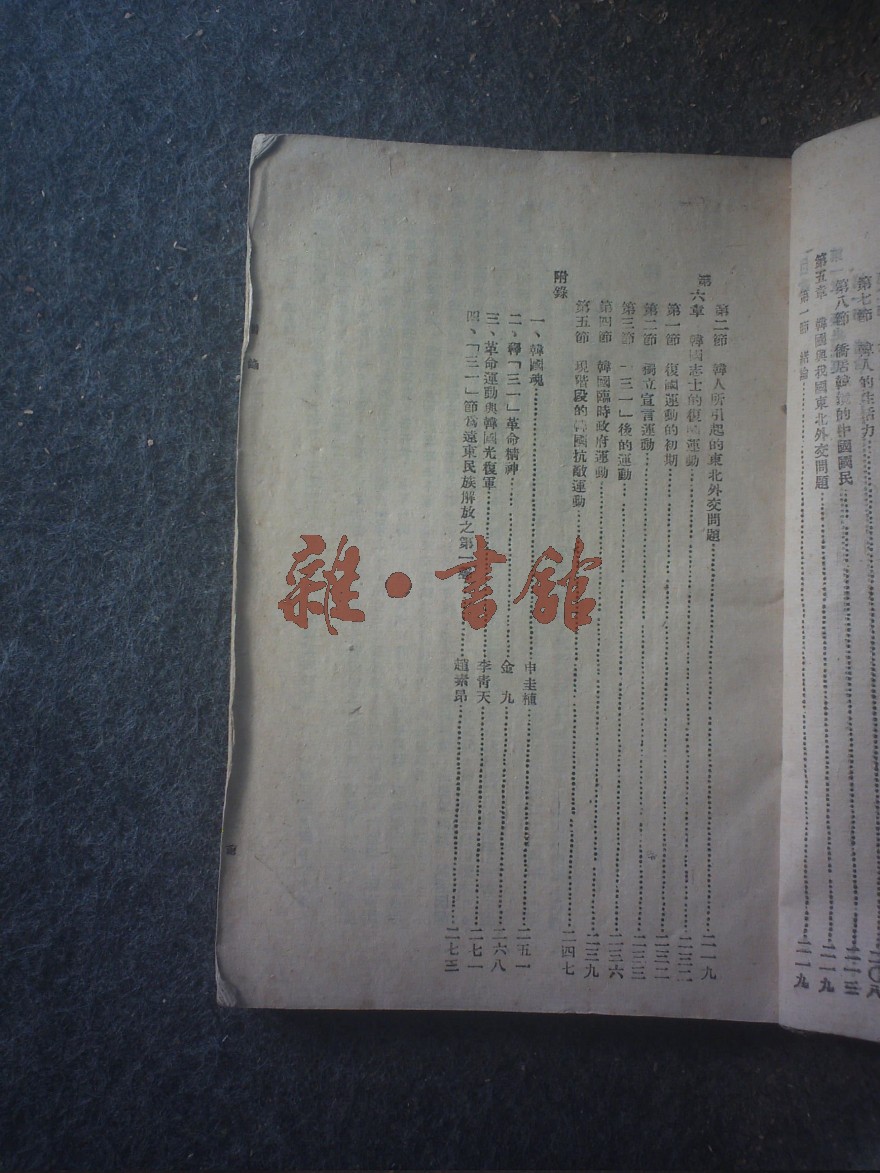 第七節 韓人的生活力 二〇八
第八節 僑居韓國的中國國民 二一三
第五章 韓國與我國東北外交問題 二一九
第一節 緒論 二一九
第二節 韓人所引起的東北外交問題 二一九
第六章 韓國志士的復國運動 二三二
第一節 復國運動的初期 二三二
第二節 獨立宣言運動 二三三
第三節 「三一」後的運動 二三六
第四節 韓國臨時政府運動 二三九
第五節 現階段的韓國抗敵運動 二四七
附錄
一、韓國魂 申圭植 二五一
二、釋「三一」革命精神 金九 二六八
三、革命運動與韓國光復軍 李青天 二七一
四、「三一」節為遠東民族解放之第一 趙素昂 二七三
雜·書館